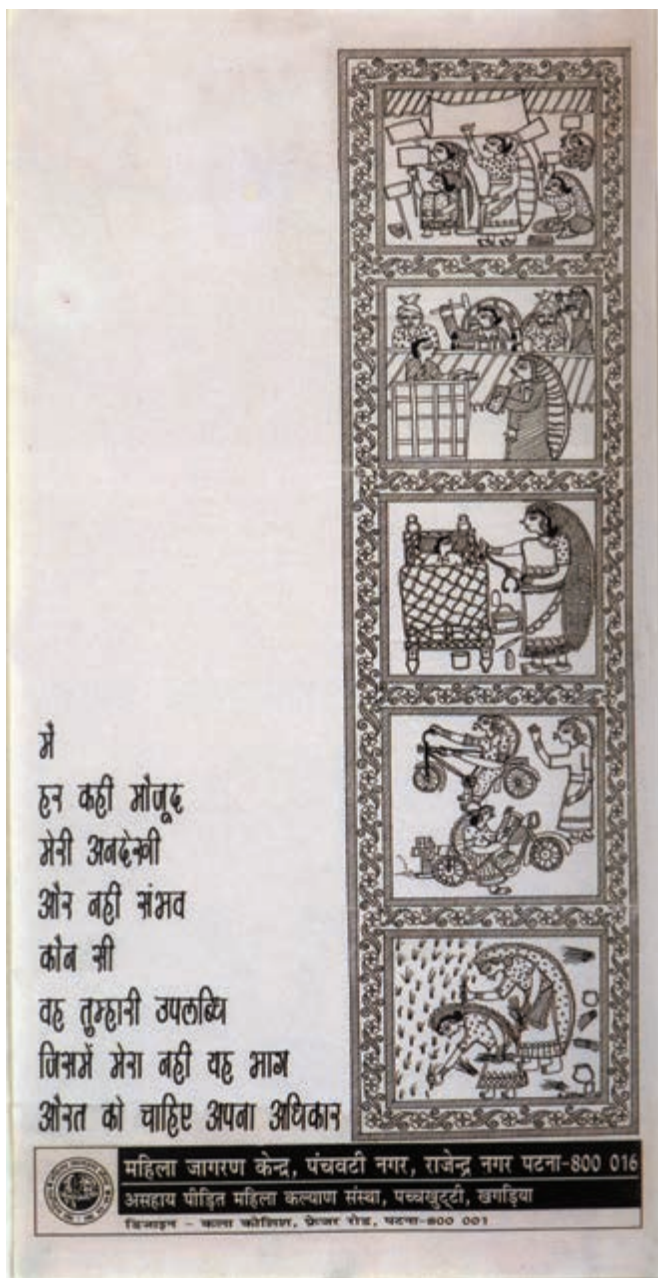 मैं
हर कहीं मौजूद
मेरी अनदेखी
और नहीं संभव
कौन सी
वह तुम्हारी उपलब्धि
जिसमें मेरा नहीं यह भाग
औरत को चाहिए अपना अधिकार
महिला जागरण केन्द्र, पंचवटी नगर, राजेन्द्र नगर पटना-800 016
असहाय पीड़ित महिला कल्याण संस्था, पच्चखुट्टी, खगड़िया
डिजाइन - कला कोलिश, फ्रेजर रोड, पटना-800 001